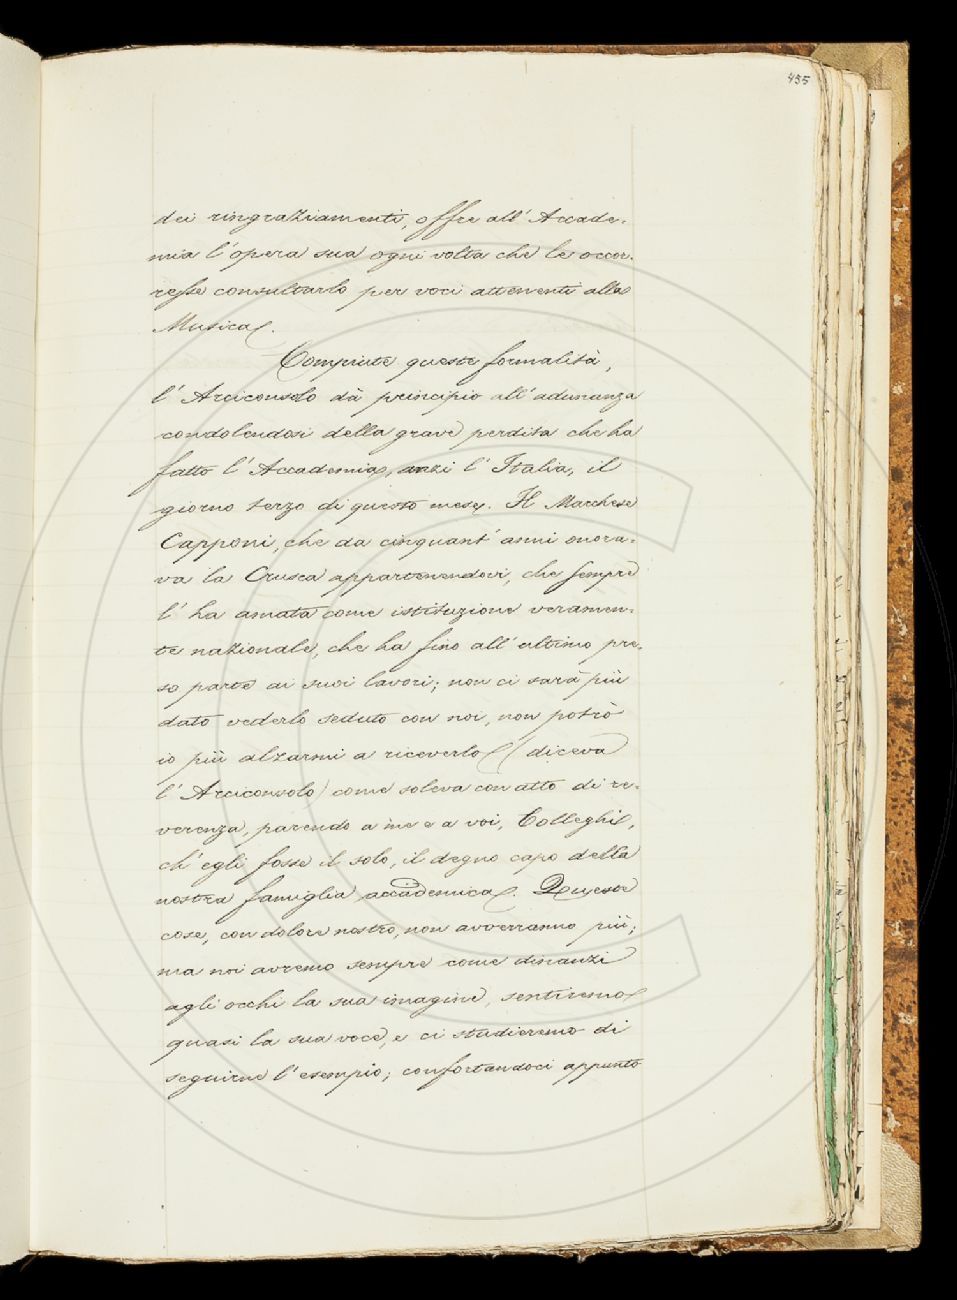 455
dei ringraziamenti, offre all' Accade-
mia l'opera sua ogni volta che le occor-
resse consultarlo per voci attenenti alla
Musica.
Compiute queste formalità,
l' Arciconsolo dà principio all' adunanza
condolendosi della grave perdita che ha
fatto l' Accademia, anzi l' Italia, il
giorno terzo di questo mese. Il Marchese
Capponi, che da cinquant' anni onora-
va la Crusca appartenendovi, che sempre
l' ha amata come istituzione veramen-
te nazionale, che ha fino all' ultimo pre-
so parte ai suoi lavori; non ci sarà più
dato vederlo seduto con noi, non potrò
io più alzarmi a riceverlo (diceva
l' Arciconsolo) come soleva con atto di re-
verenza, parendo a me e a voi, Colleghi,
ch' egli fosse il solo, il degno capo della
nostra famiglia accademica. Queste
cose, con dolore nostro, non avverranno più;
ma noi avremo sempre come dinanzi
agli occhi la sua imagine, sentiremo
quasi la sua voce, e ci studieremo di
seguirne l' esempio; confortandoci appunto